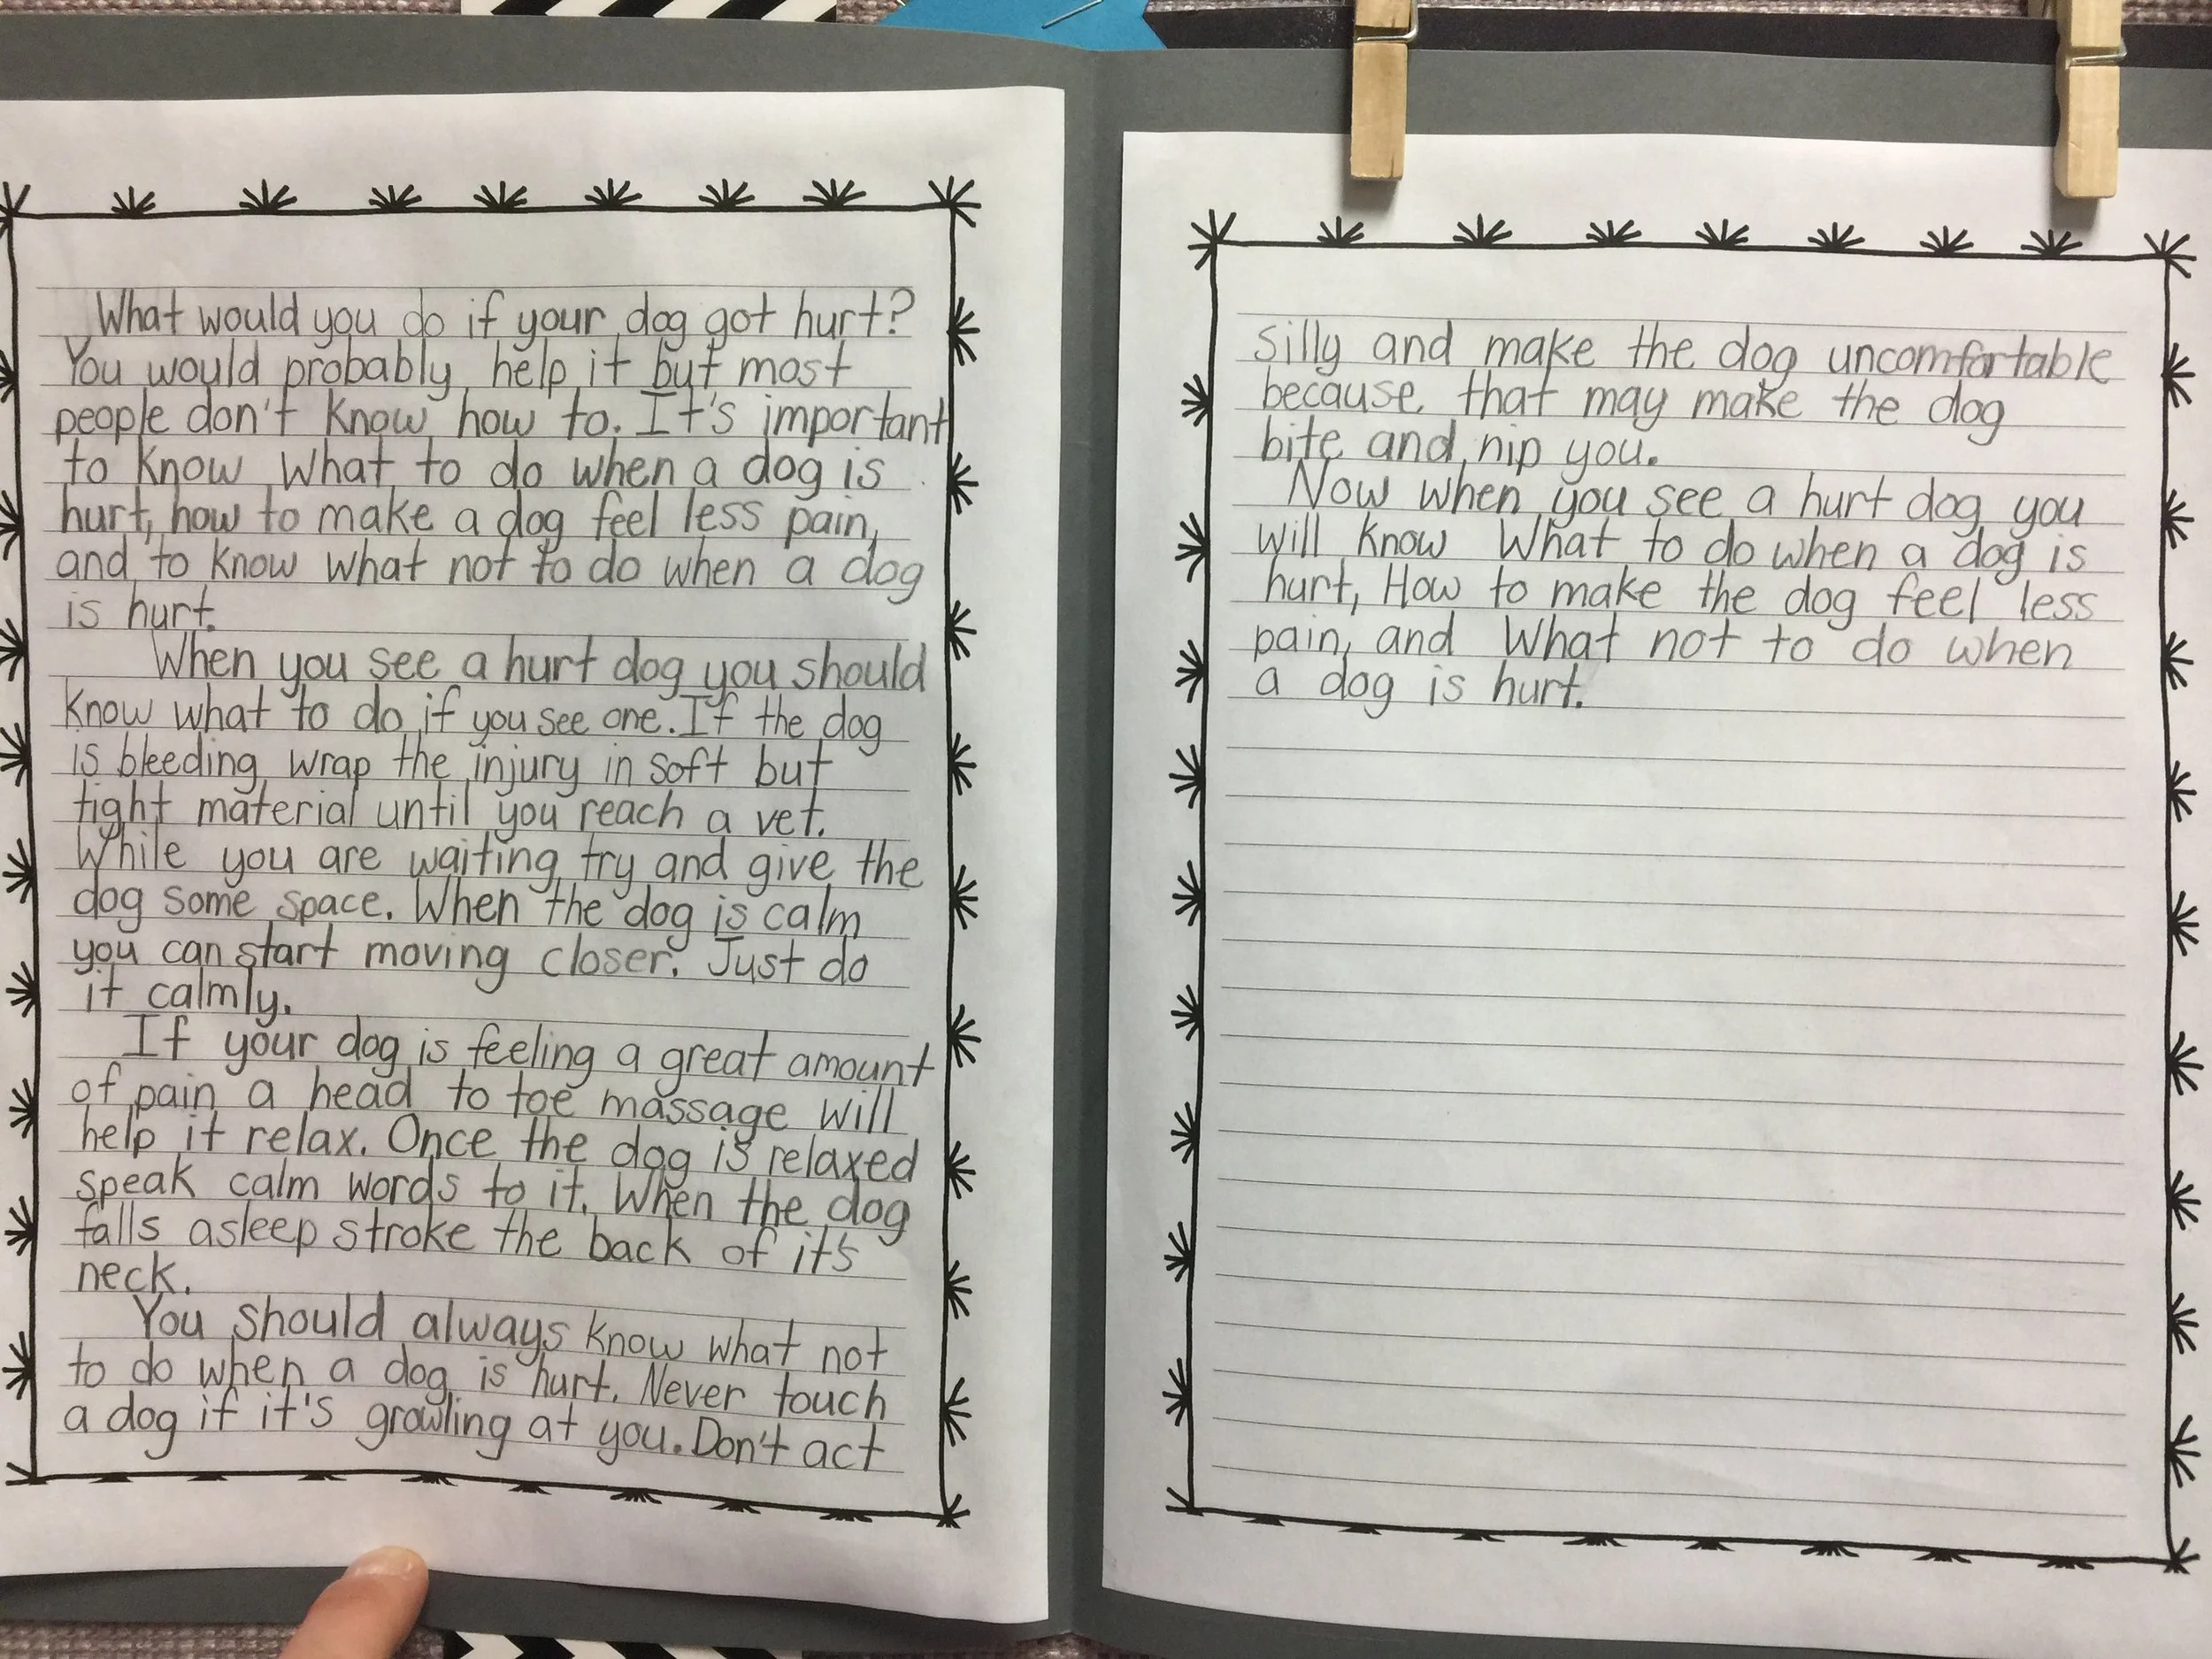 What would you do if your dog got hurt?
You would probably help it but most
people don't know how to. It's important
to know what to do when a dog is
hurt, how to make a dog feel less pain,
and to know what not to do when a dog
is hurt.
When you see a hurt dog you should
know what to do if you see one. If the dog
is bleeding wrap the injury in soft but
tight material until you reach a vet.
While you are waiting try and give the
dog some space. When the dog is calm
you can start moving closer. Just do
it calmly.
If your dog is feeling a great amount
of pain a head to toe massage will
help it relax. Once the dog is relaxed
speak calm words to it. When the dog
falls asleep stroke the back of it's
neck.
You should always know what not
to do when a dog is hurt. Never touch
a dog if it's growling at you. Don't act
silly and make the dog uncomfortable
because that may make the dog
bite and nip you.
Now when you see a hurt dog you
will know What to do when a dog is
hurt, How to make the dog feel less
pain, and What not to do when
a dog is hurt.